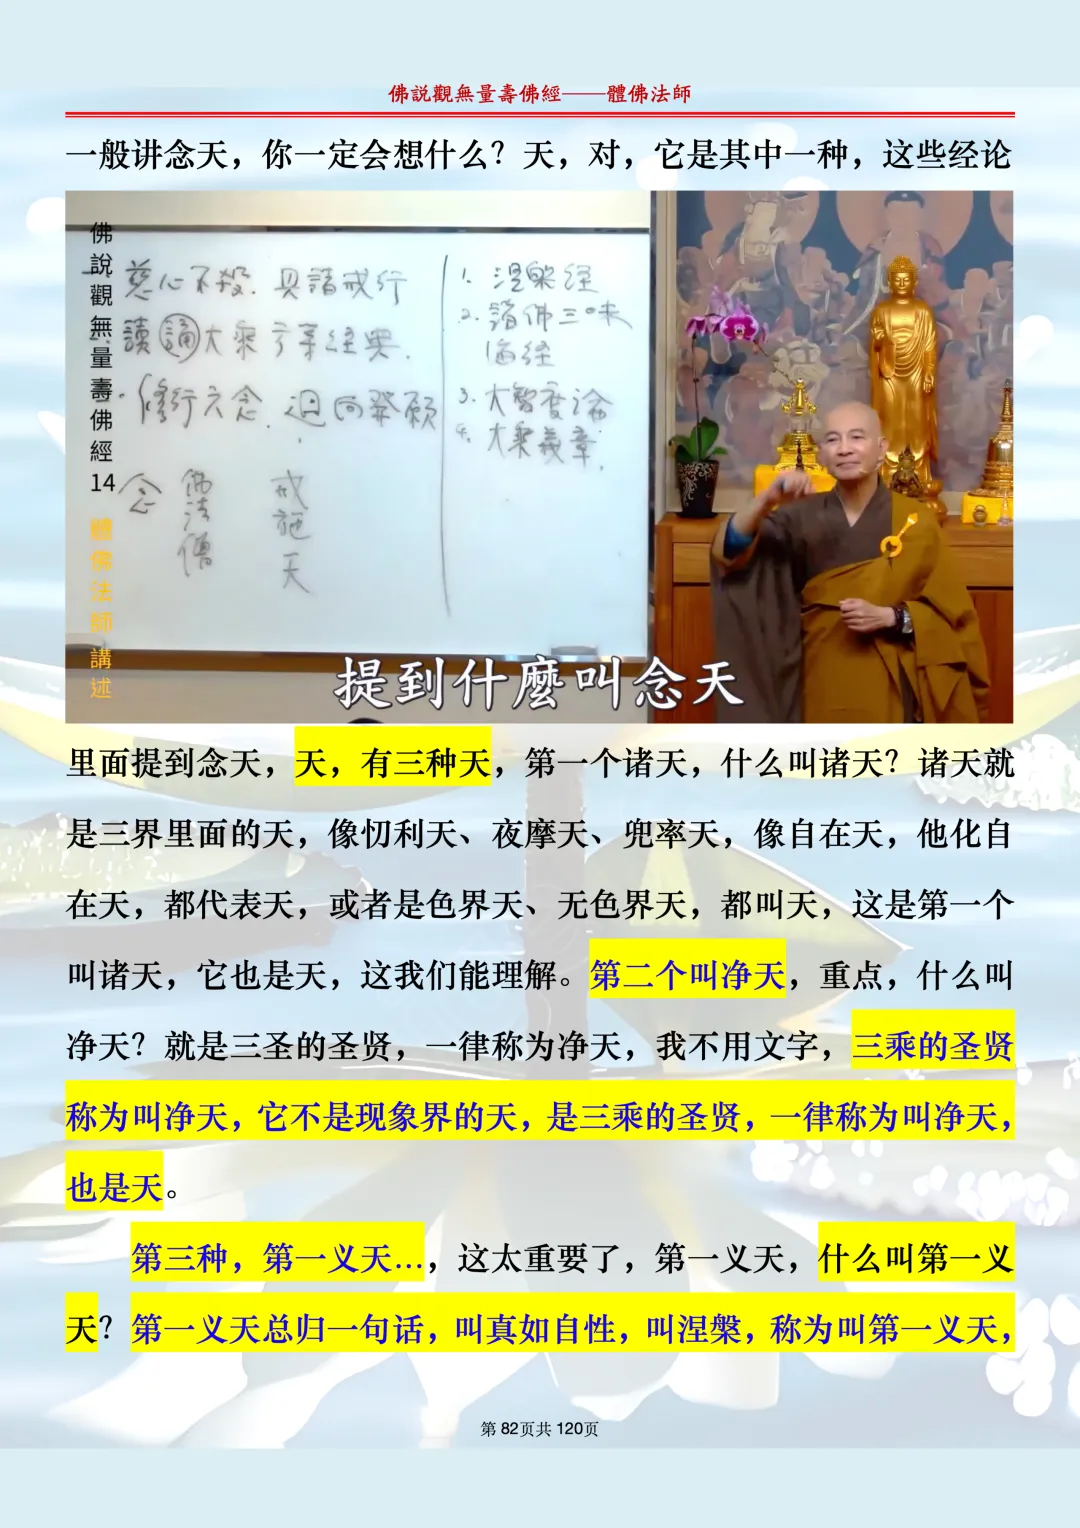 佛說觀無量壽佛經——體佛法師
一般讲念天，你一定会想什么？天，对，它是其中一种，这些经论
佛說觀無量壽佛經14 體佛法師講述
慈心不殺．具諸戒行
讀誦大乘方等經典．
修行六念．迴向發願
念 佛法僧 戒施天
1. 涅槃經
2. 諸佛三昧
海經
3. 大智度论
4. 大乘義章．
提到什麼叫念天
里面提到念天，天，有三种天，第一个诸天，什么叫诸天？诸天就
是三界里面的天，像忉利天、夜摩天、兜率天，像自在天，他化自
在天，都代表天，或者是色界天、无色界天，都叫天，这是第一个
叫诸天，它也是天，这我们能理解。第二个叫净天，重点，什么叫
净天？就是三圣的圣贤，一律称为净天，我不用文字，三乘的圣贤
称为叫净天，它不是现象界的天，是三乘的圣贤，一律称为叫净天，
也是天。
第三种，第一义天…，这太重要了，第一义天，什么叫第一义
天？第一义天总归一句话，叫真如自性，叫涅槃，称为叫第一义天，
第 82页共 120页